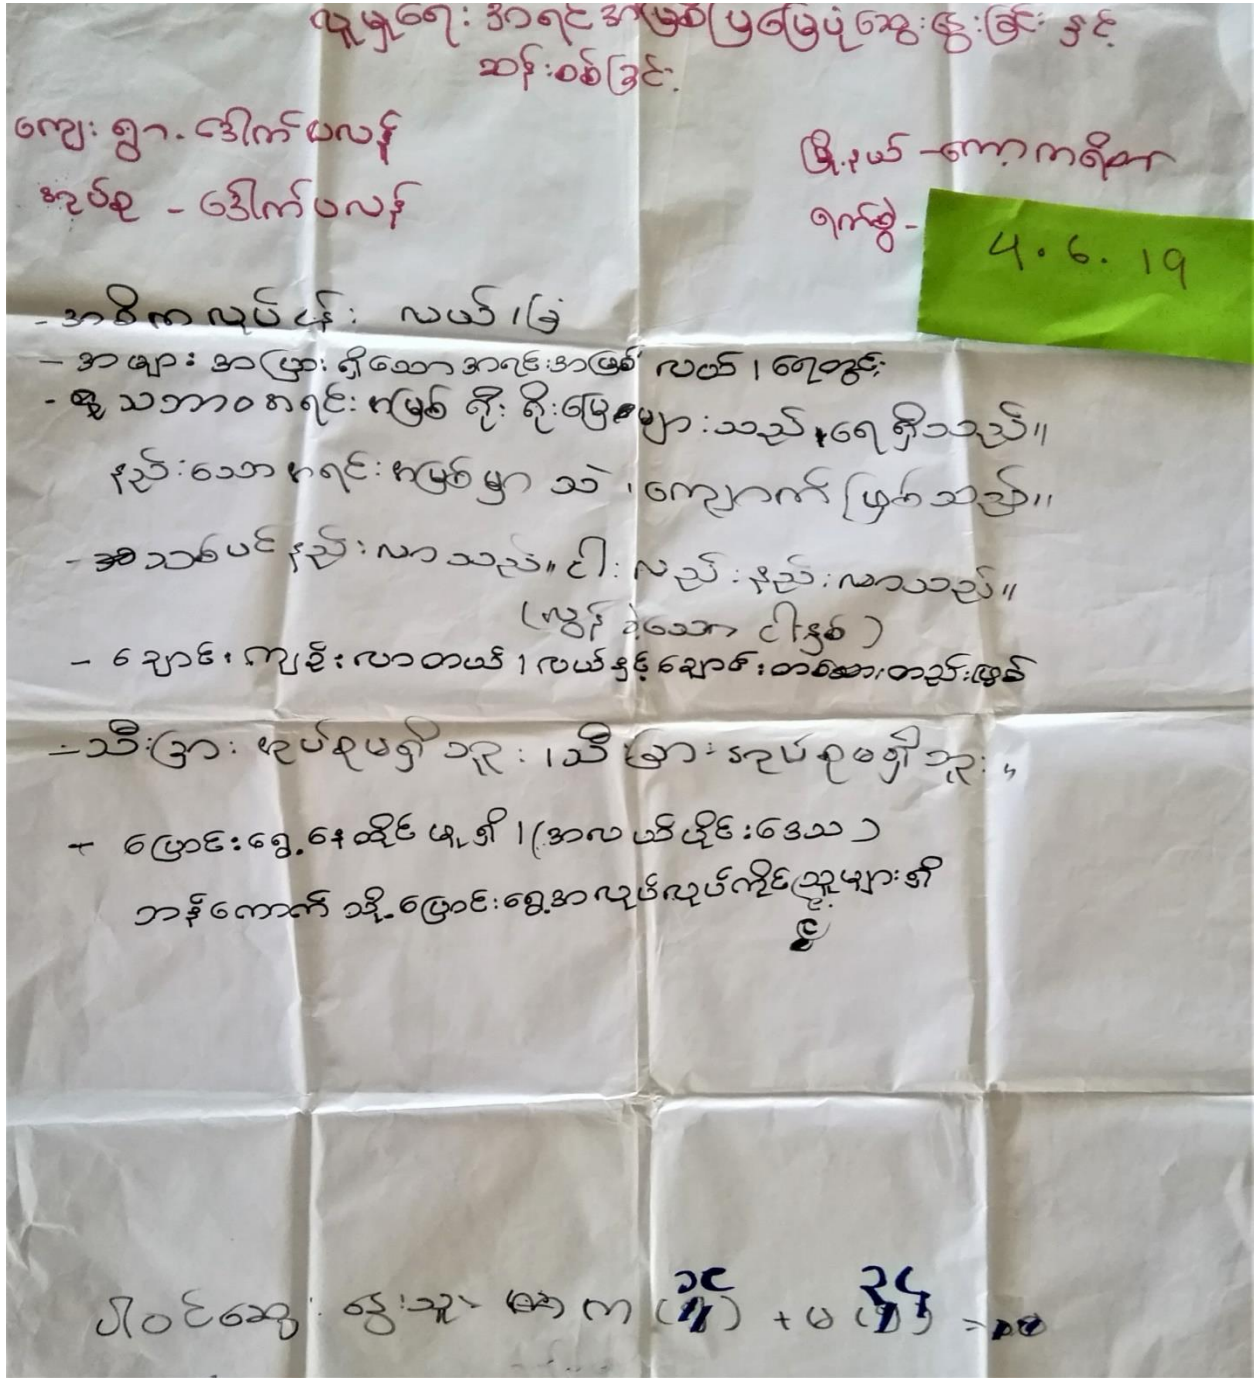 လူမှုရေး အရင်းအမြစ်ပြမြေပုံဆွေးနွေးခြင်း နှင့်
ဆန်းစစ်ခြင်း
ကျေးရွာ - ဒေါက်ပလန်
မြို့နယ် - ကော့ကရိတ်
အုပ်စု - ဒေါက်ပလန်
ရက်စွဲ -
4.6.19
- အဓိကလုပ်ငန်း လယ်၊ခြံ
- အများအပြားရှိသောအရင်းအမြစ် လယ်၊ ရေတွင်း
- သဘာဝအရင်းအမြစ် ရိုးရိုးမြေများသည် ရေရှိသည်။
နည်းသောအရင်းအမြစ်မှာ သဲ၊ကျောက်ဖြစ်သည်။
- သစ်ပင်နည်းလာသည်။ ငါးလည်းနည်းလာသည်။
(လွန်ခဲ့သော ၎ါးနှစ်)
- ချောင်းကျဉ်းလာတယ်၊ လယ်နှင့်ချောင်းတစ်သားတည်းဖြစ်
- သီးခြားအုပ်စုမရှိဘူး၊ သီးခြားအုပ်စုမရှိဘူး။
- ပြောင်းရွှေ့နေထိုင်မှုရှိ၊ (အလယ်ပိုင်းဒေသ)
ဘန်ကောက်သို့ပြောင်းရွှေ့အလုပ်လုပ်ကိုင်သူများရှိ
၍
ပါဝင်ဆွေးနွေးသူ- ကျား ( ) + မ ( ) =